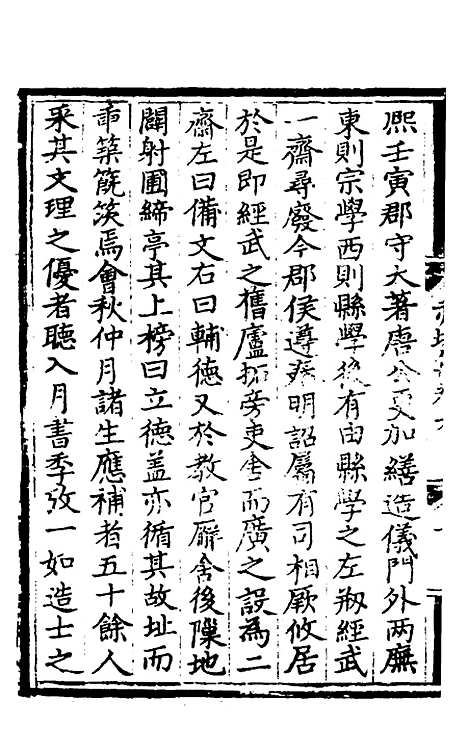 熙壬寅郡守大著唐公更加繕造儀門外两廡
東則宗學西則縣學後有由縣學之左剏經武
一齋尋廢今郡侯遵奉明詔屬有司相厥攸居
於是即經武之舊廬拓旁吏舍而廣之設為二
齋左曰備文右曰輔德又於教官廨舍後隟地
闢射圃締亭其上榜曰立德盖亦循其故址而
亟築簁笶焉會秋仲月諸生應補者五十餘人
采其文理之優者聽入月書季攷一如造士之